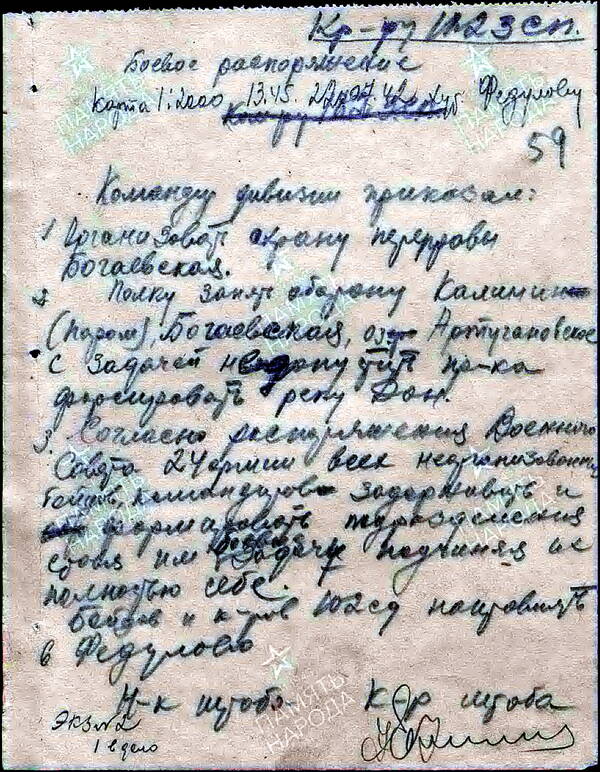 Кр-ру 1123 сп.
Боевое распоряжение
Карта 1:2000 13.45. 22.07.42 Хут Федулову
59
Командир дивизии приказал:
1 Организовать охрану переправы
Богаевская.
2 Полку занять оборону Калинин
(паром), Богаевская, оз. Артугановское
с задачей недопустить пр-ка
форсировать реку Дон.
3. Согласно распоряжения Военного
Совета 24 армии всех неорганизованных
бойцов, командиров задерживать и
формировать подразделения
ставя им боевые задачи подчиняя их
полностью себе.
Бойцов и к-ров 102 сд направлять
в Федулово
Н-к штаба К-р штаба
Экз №2
1 в дело
ПАМЯТЬ НАРОДА
ПАМЯТЬ НАРОДА
ПАМЯТЬ НАРОДА